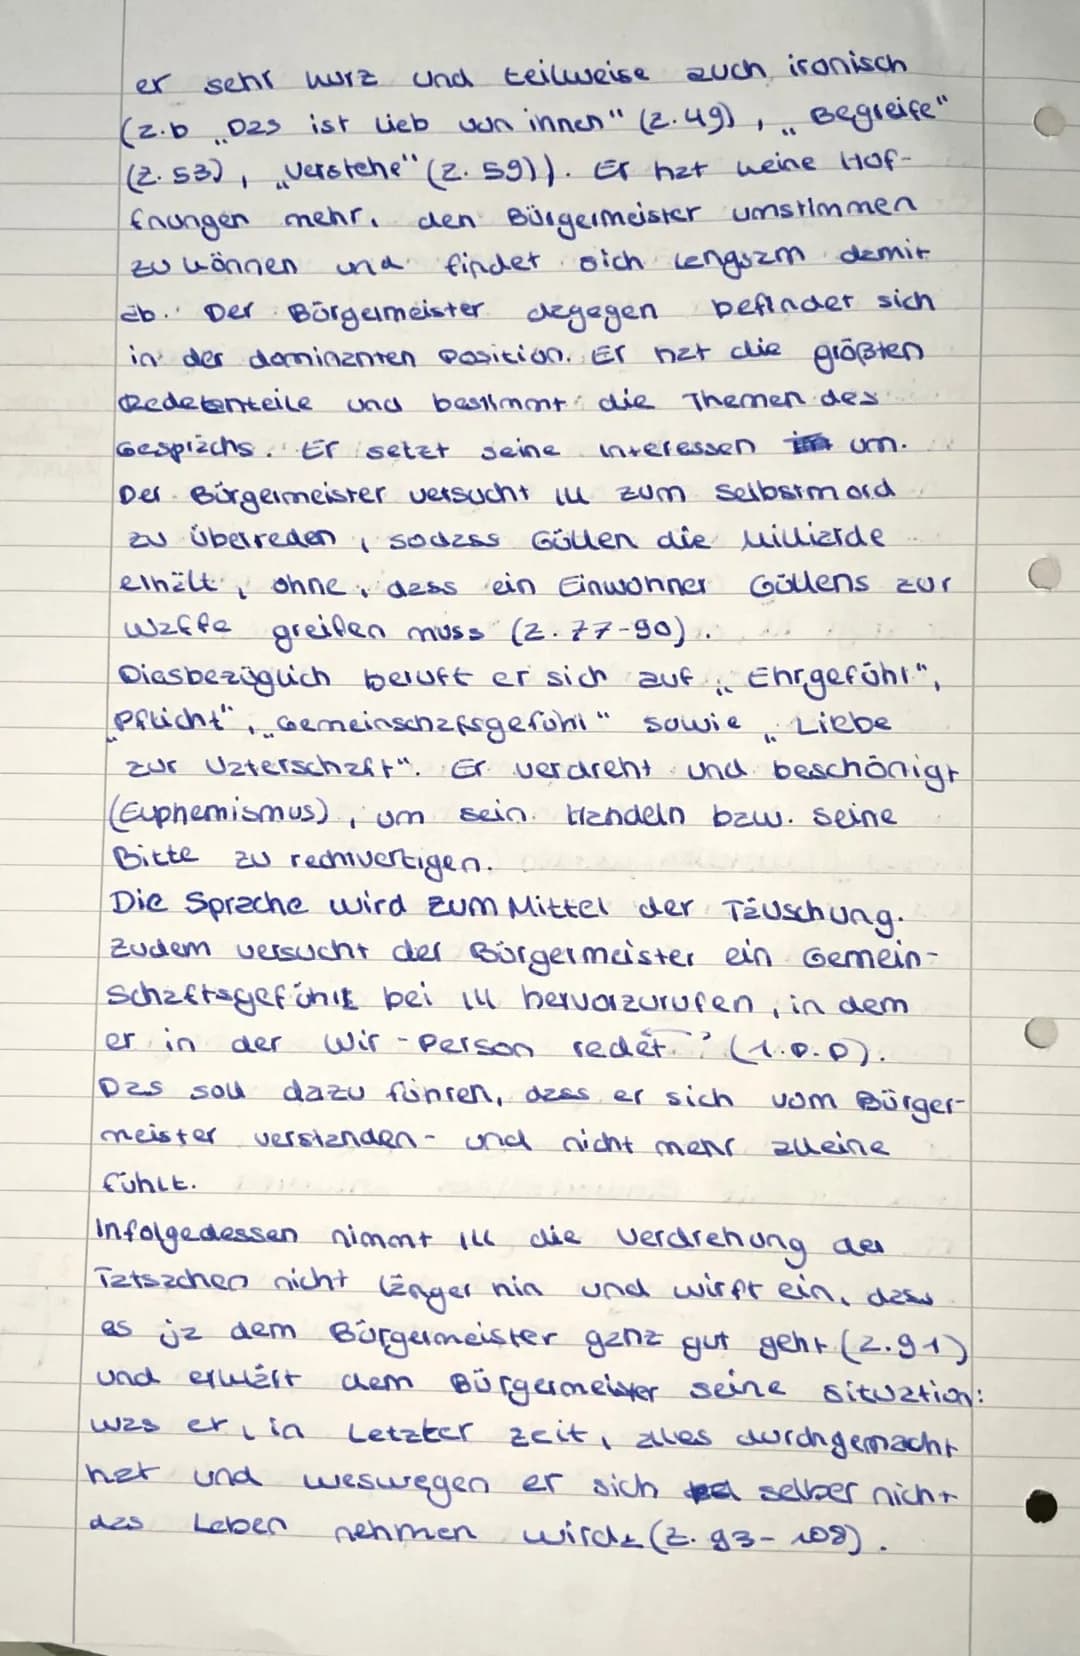 er sehr kurz und teilweise auch ironisch
(z.b „Das ist lieb von innen" (z.49), „Begreife"
(z.53), „Verstehe" (z.59)). Er hat keine Hof-
fnungen mehr, den Bürgermeister umstimmen
zu können und findet sich langsam damit
ab. Der Bürgermeister dagegen befindet sich
in der dominanten Position. Er hat die größten
Redeanteile und bestimmt die Themen des
Gesprächs. Er setzt seine Interessen um.
Der Bürgermeister versucht Ill zum Selbstmord
zu überreden, sodass Güllen die Milliarde
erhält, ohne, dass ein Einwohner Güllens zur
Waffe greifen muss (z.77-90).
Diesbezüglich beruft er sich auf „Ehrgefühl",
„Pflicht", „Gemeinschafsgefühl" sowie „Liebe
zur Vaterschaft". Er verdreht und beschönigt
(Euphemismus), um sein Handeln bzw. seine
Bitte zu rechtvertigen.
Die Sprache wird zum Mittel der Täuschung.
Zudem versucht der Bürgermeister ein Gemein-
schaftsgefühl bei Ill hervorzurufen, in dem
er in der Wir-Person redet ? (1.P.P).
Das soll dazu führen, dass er sich vom Bürger-
meister verstanden- und nicht mehr alleine
fühlt.
Infolgedessen nimmt Ill die Verdrehung der
Tatsachen nicht länger hin und wirft ein, dass
es ja dem Bürgermeister ganz gut geht (z.91)
und erklärt dem Bürgermeister seine Situation:
was er, in letzter zeit, alles durchgemacht
hat und weswegen er sich selber nicht
das Leben nehmen wird (z.93-108).